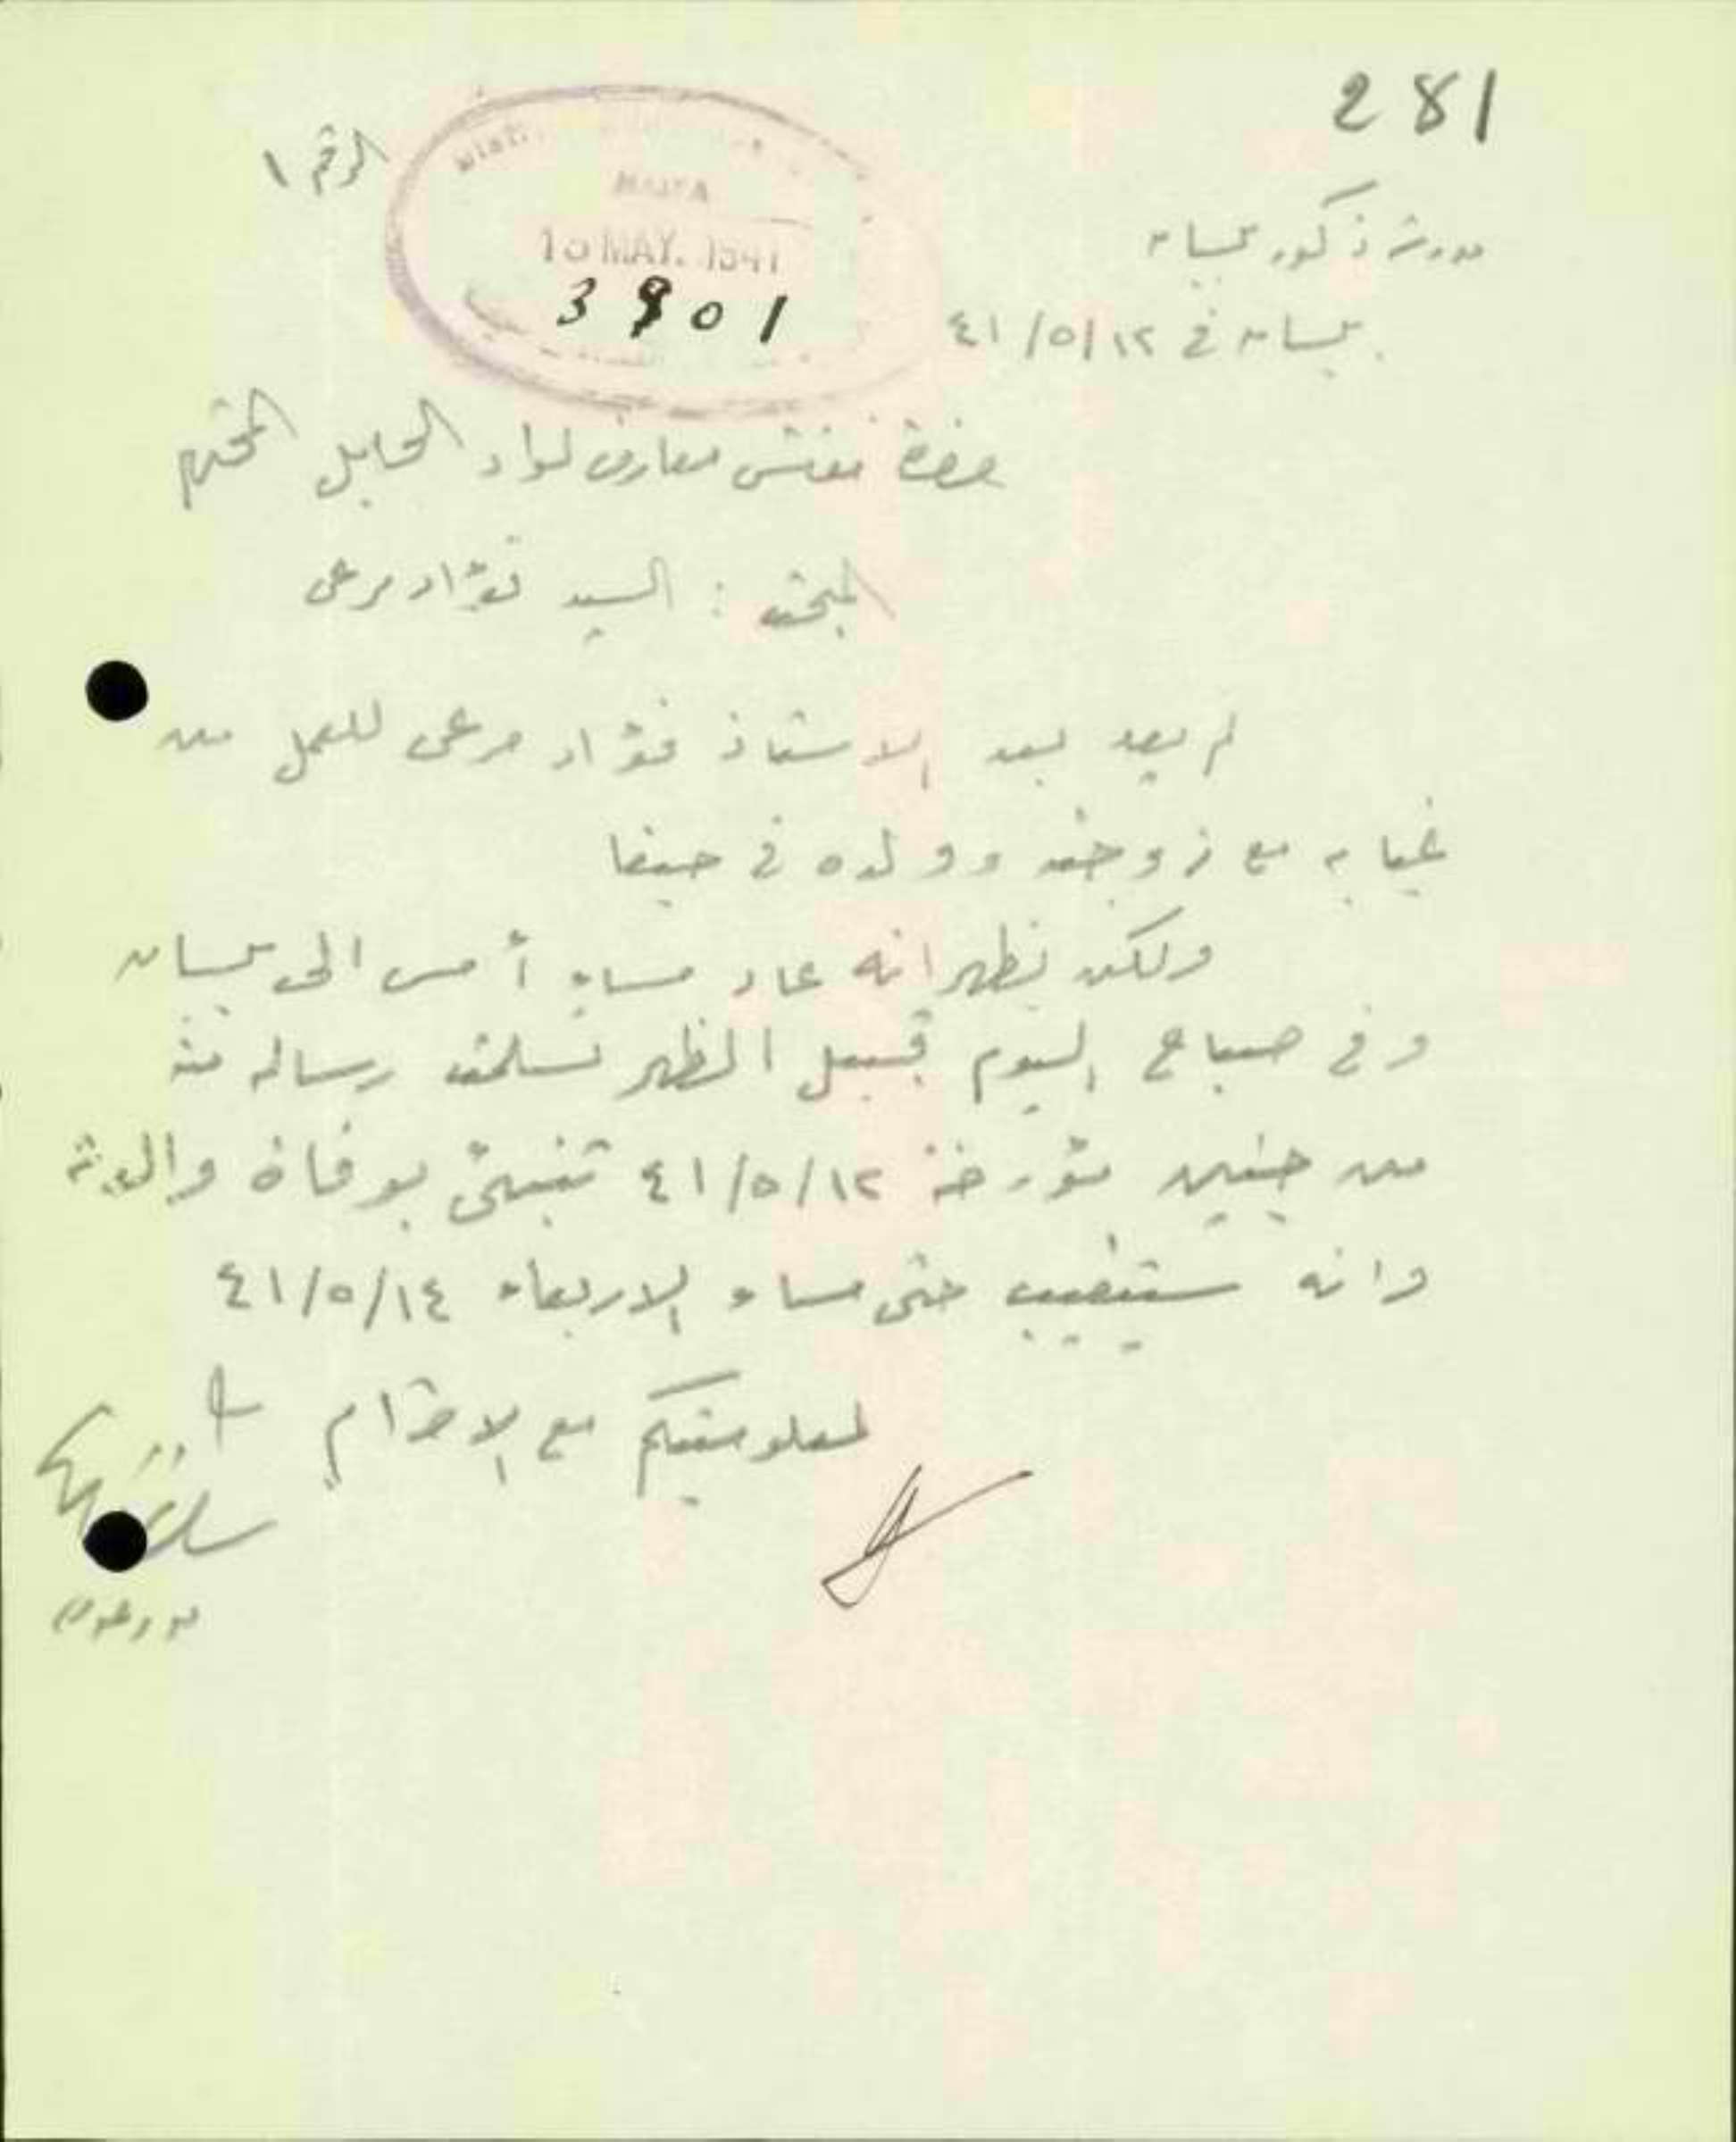 281
الرقم ١
HAIFA
MAY. 1941
3901
مدرسة ذكور بيسان
بيسان في ٤١/٥/١٢
حضرة مفتش معارف لواء الجليل المحترم
المبحث : السيد فؤاد مرعي
لم يعد بعد الاستاذ فؤاد مرعي للعمل من
غيابه مع زوجته وولده في حيفا
ولكن يظهر انه عاد مساء أمس الى بيسان
وفي صباح اليوم قبيل الظهر تسلمت رسالة منه
من جنين مؤرخة ٤١/٥/١٢ تنبئ بوفاة والدته
وانه سيتغيب حتى مساء الاربعاء ٤١/٥/١٤
لمعلوميتكم مع الاحترام